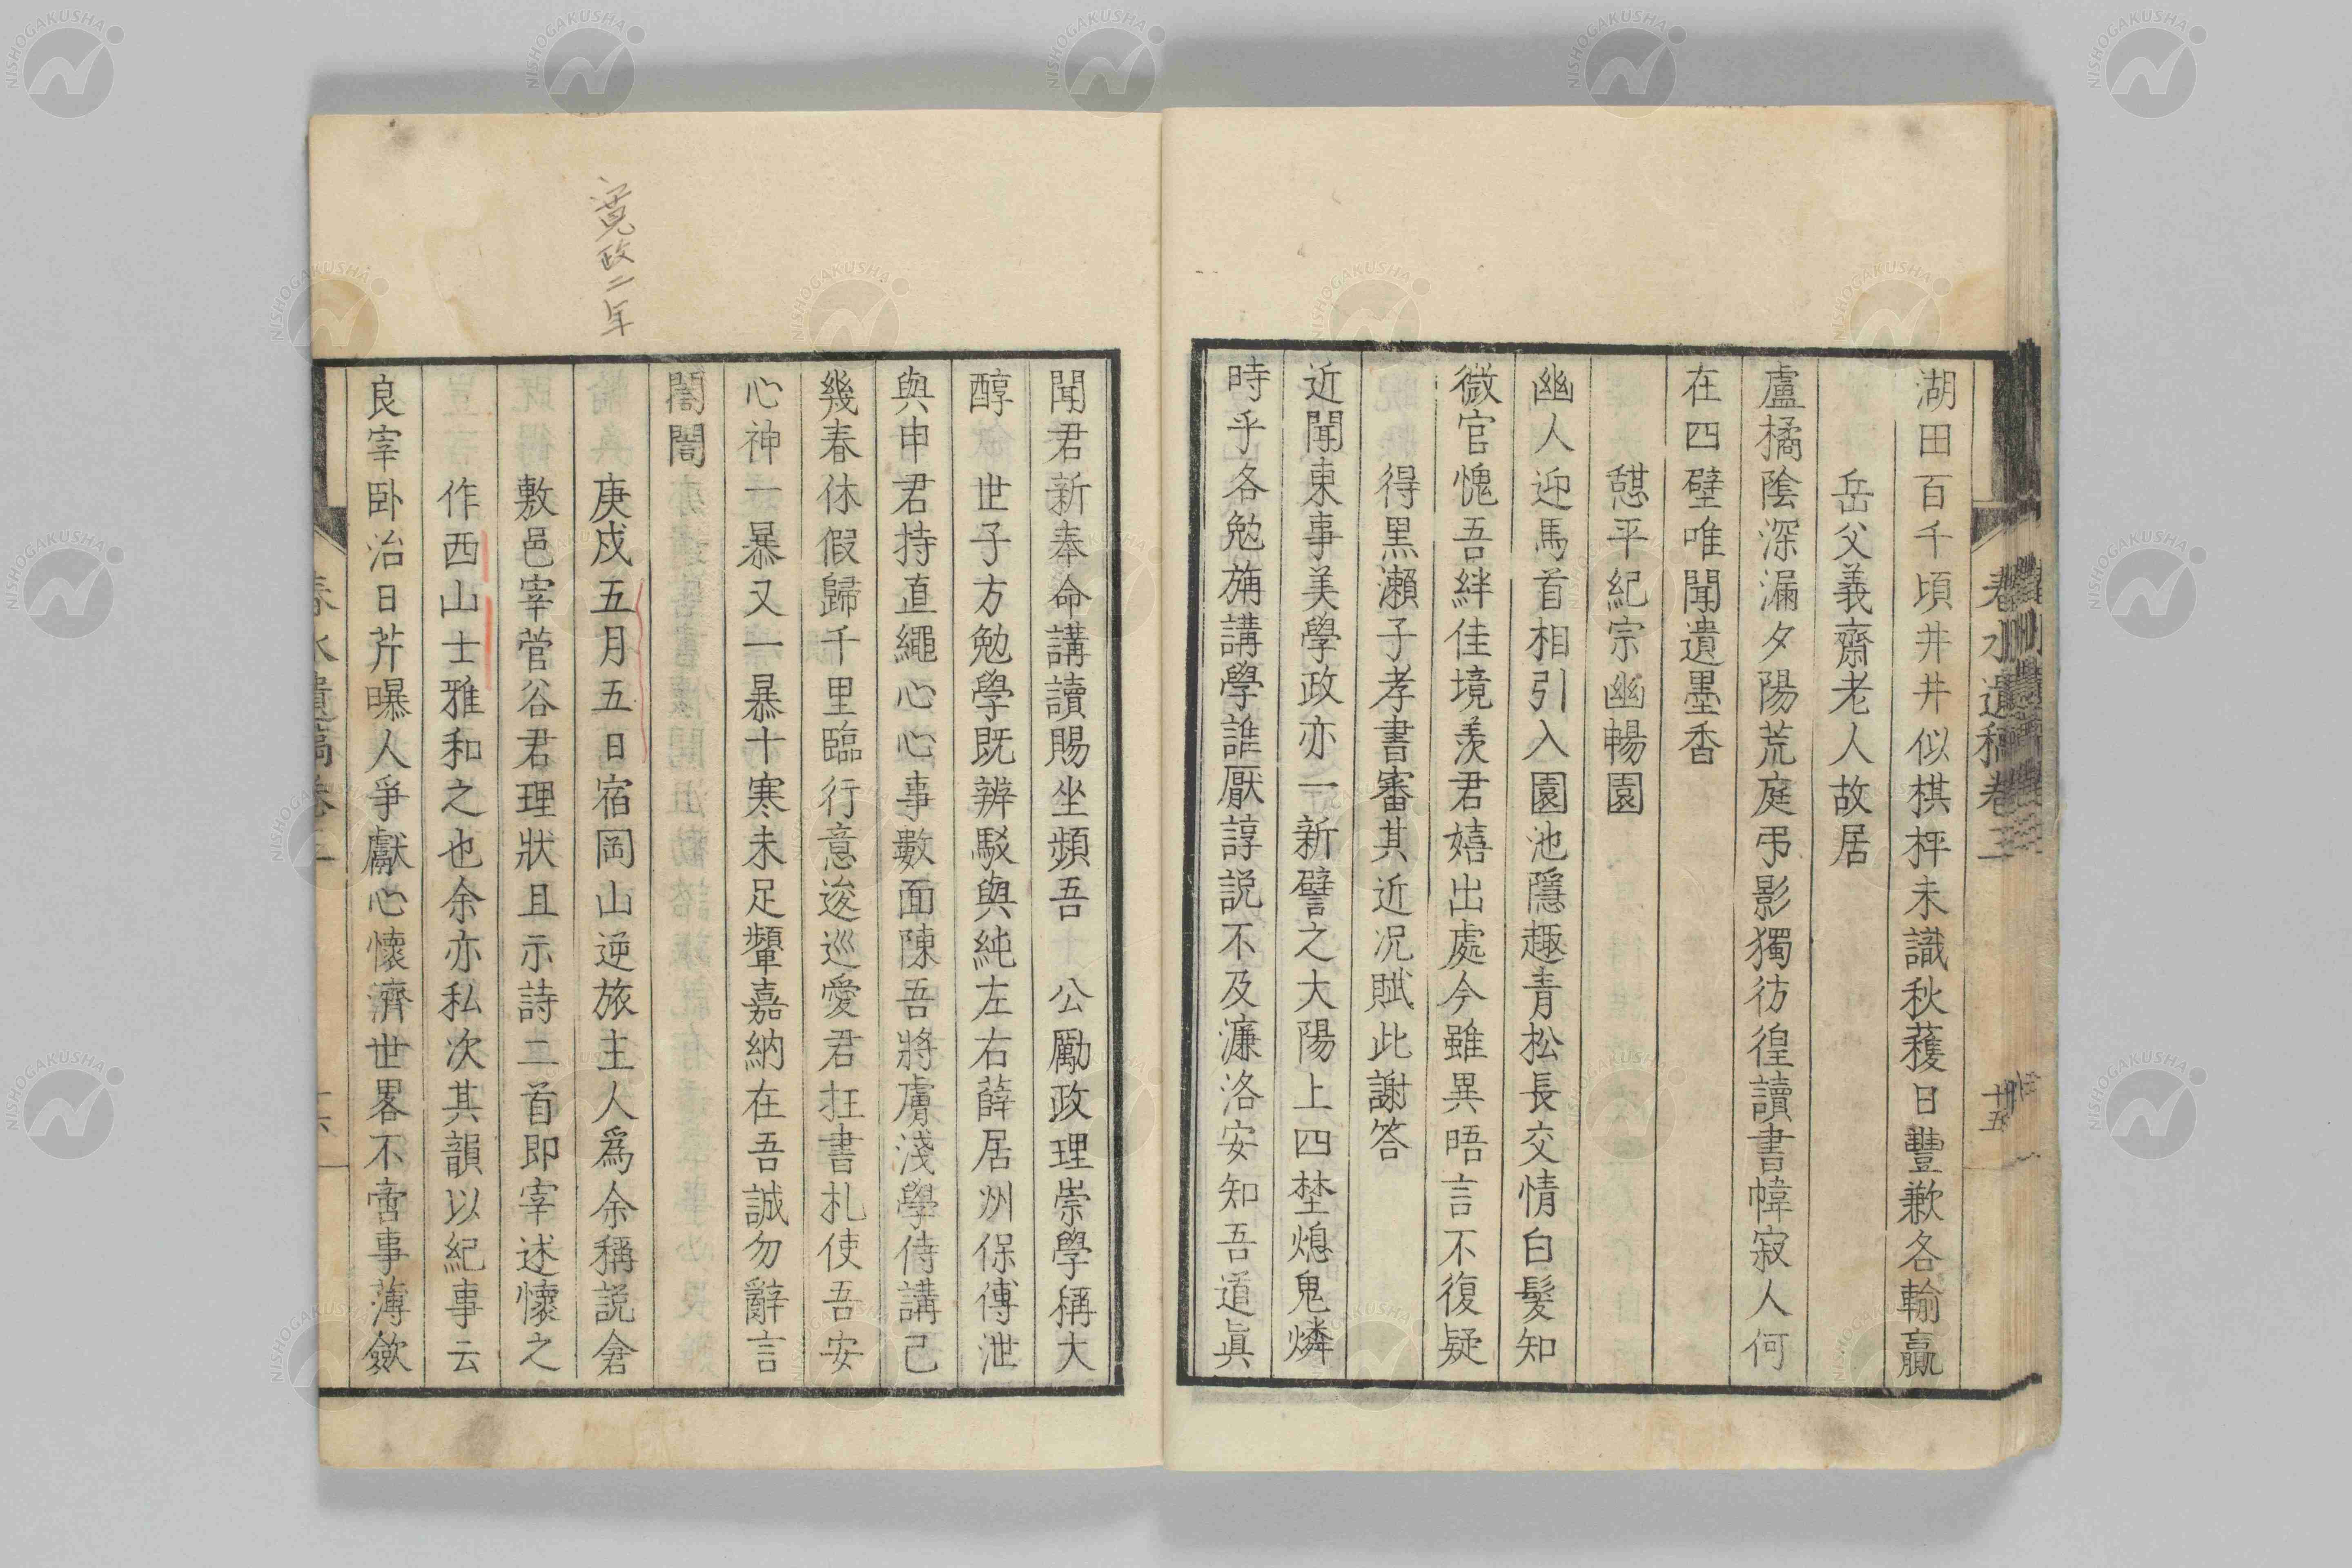 春水遺稿卷三
十五
湖田百千頃井井似棋枰未識秋穫日豐歉各輸贏
岳父義齋老人故居
盧橘陰深漏夕陽荒庭弔影獨彷徨讀書幃寂人何
在四壁唯聞遺墨香
憩平紀宗幽暢園
幽人迎馬首相引入園池隱趣青松長交情白髮知
微官愧吾絆佳境羨君嬉出處今雖異晤言不復疑
得黑瀨子孝書審其近况賦此謝答
近聞東事美學政亦一新譬之大陽上四埜熄鬼燐
時乎各勉旃講學誰厭諄説不及濂洛安知吾道眞
聞君新奉命講讀賜坐頻吾 公勵政理崇學稱大
醇 世子方勉學既辨駁與純左右薛居州保傅泄
與申君持直繩心心事數面陳吾將膚淺學侍講己
幾春休假歸千里臨行意逡巡愛君抂書札使吾安
心神一暴又一暴十寒未足顰嘉納在吾誠勿辭言
誾誾
寛政二年
庚戍五月五日宿岡山逆旅主人爲余稱説倉
敷邑宰菅谷君理狀且示詩二首即宰述懷之
作西山士雅和之也余亦私次其韻以紀事云
良宰卧治日芹曝人爭獻心懷濟世畧不啻事薄斂
春水遺稿卷三
十六
NISHOGAKUSHA